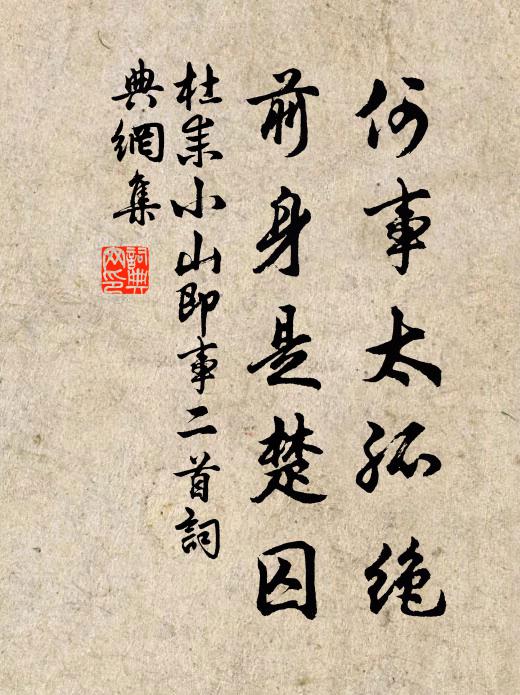 何事太孤絶
前身是楚囚
杜耒小山即事二首詞
典網集
詞典網印